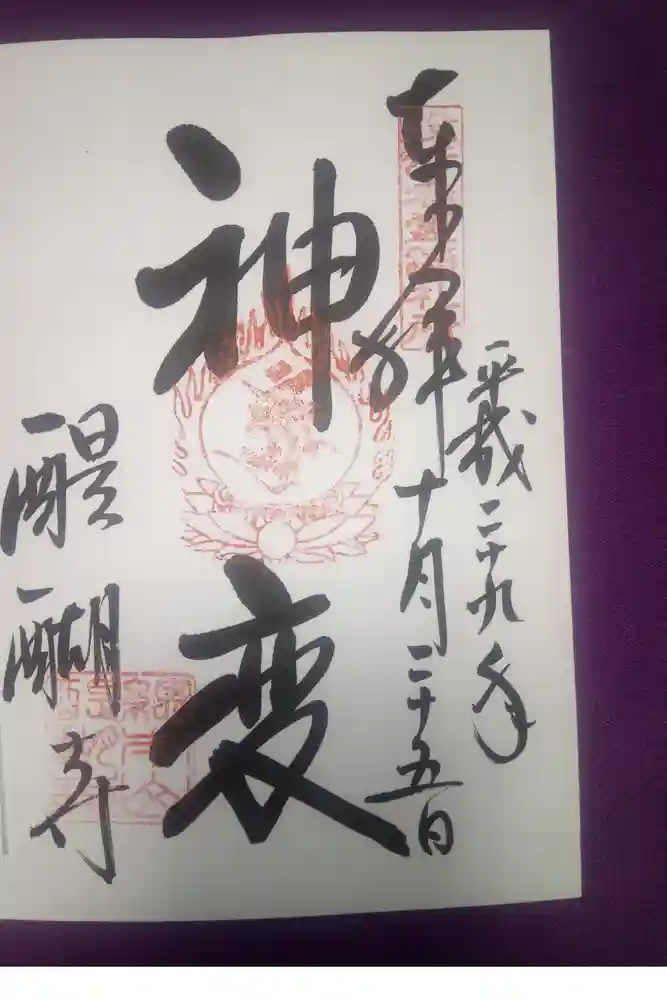 奉拝
平成二十九年
十月二十五日
神変
醍醐寺